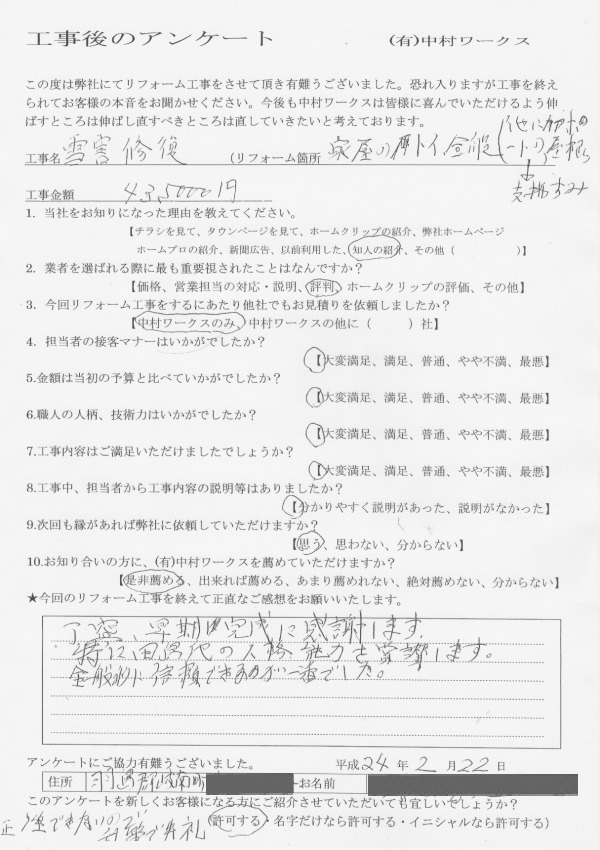 工事後のアンケート (有)中村ワークス
この度は弊社にてリフォーム工事をさせて頂き有難うございました。恐れ入りますが工事を終え
られてお客様の本音をお聞かせください。今後も中村ワークスは皆様に喜んでいただけるよう伸
ばすところは伸ばし直すべきところは直していきたいと考えております。
工事名 雪害修復 (リフォーム箇所 家屋の雨トイ全般
支払ずみ
工事金額 435000円
1. 当社をお知りになった理由を教えてください。
【チラシを見て、タウンページを見て、ホームクリップの紹介、弊社ホームページ
ホームプロの紹介、新聞広告、以前利用した、知人の紹介、その他（ ）】
2. 業者を選ばれる際に最も重要視されたことはなんですか？
【価格、営業担当の対応・説明、評判、ホームクリップの評価、その他】
3. 今回リフォーム工事をするにあたり他社でもお見積りを依頼しましたか？
【中村ワークスのみ、中村ワークスの他に（ ）社】
4. 担当者の接客マナーはいかがでしたか？
【大変満足、満足、普通、やや不満、最悪】
5.金額は当初の予算と比べていかがでしたか？
【大変満足、満足、普通、やや不満、最悪】
6.職人の人柄、技術力はいかがでしたか？
【大変満足、満足、普通、やや不満、最悪】
7.工事内容はご満足いただけましたでしょうか？
【大変満足、満足、普通、やや不満、最悪】
8.工事中、担当者から工事内容の説明等はありましたか？
【分かりやすく説明があった、説明がなかった】
9.次回も縁があれば弊社に依頼していただけますか？
【思う、思わない、分からない】
10.お知り合いの方に、(有)中村ワークスを薦めていただけますか？
【是非薦める、出来れば薦める、あまり薦めれない、絶対薦めない、分からない】
★今回のリフォーム工事を終えて正直なご感想をお願いいたします。
丁寧、早期の完成に感謝します。
特に田宮代の人格、能力を賞讃します。
全般的に信頼できるのが一番でした。
アンケートにご協力有難うございました。 平成24年2月22日
住所 羽島郡岐南町 お名前
このアンケートを新しくお客様になる方にご紹介させていただいても宜しいでしょうか？
（許可する・名字だけなら許可する・イニシャルなら許可する）